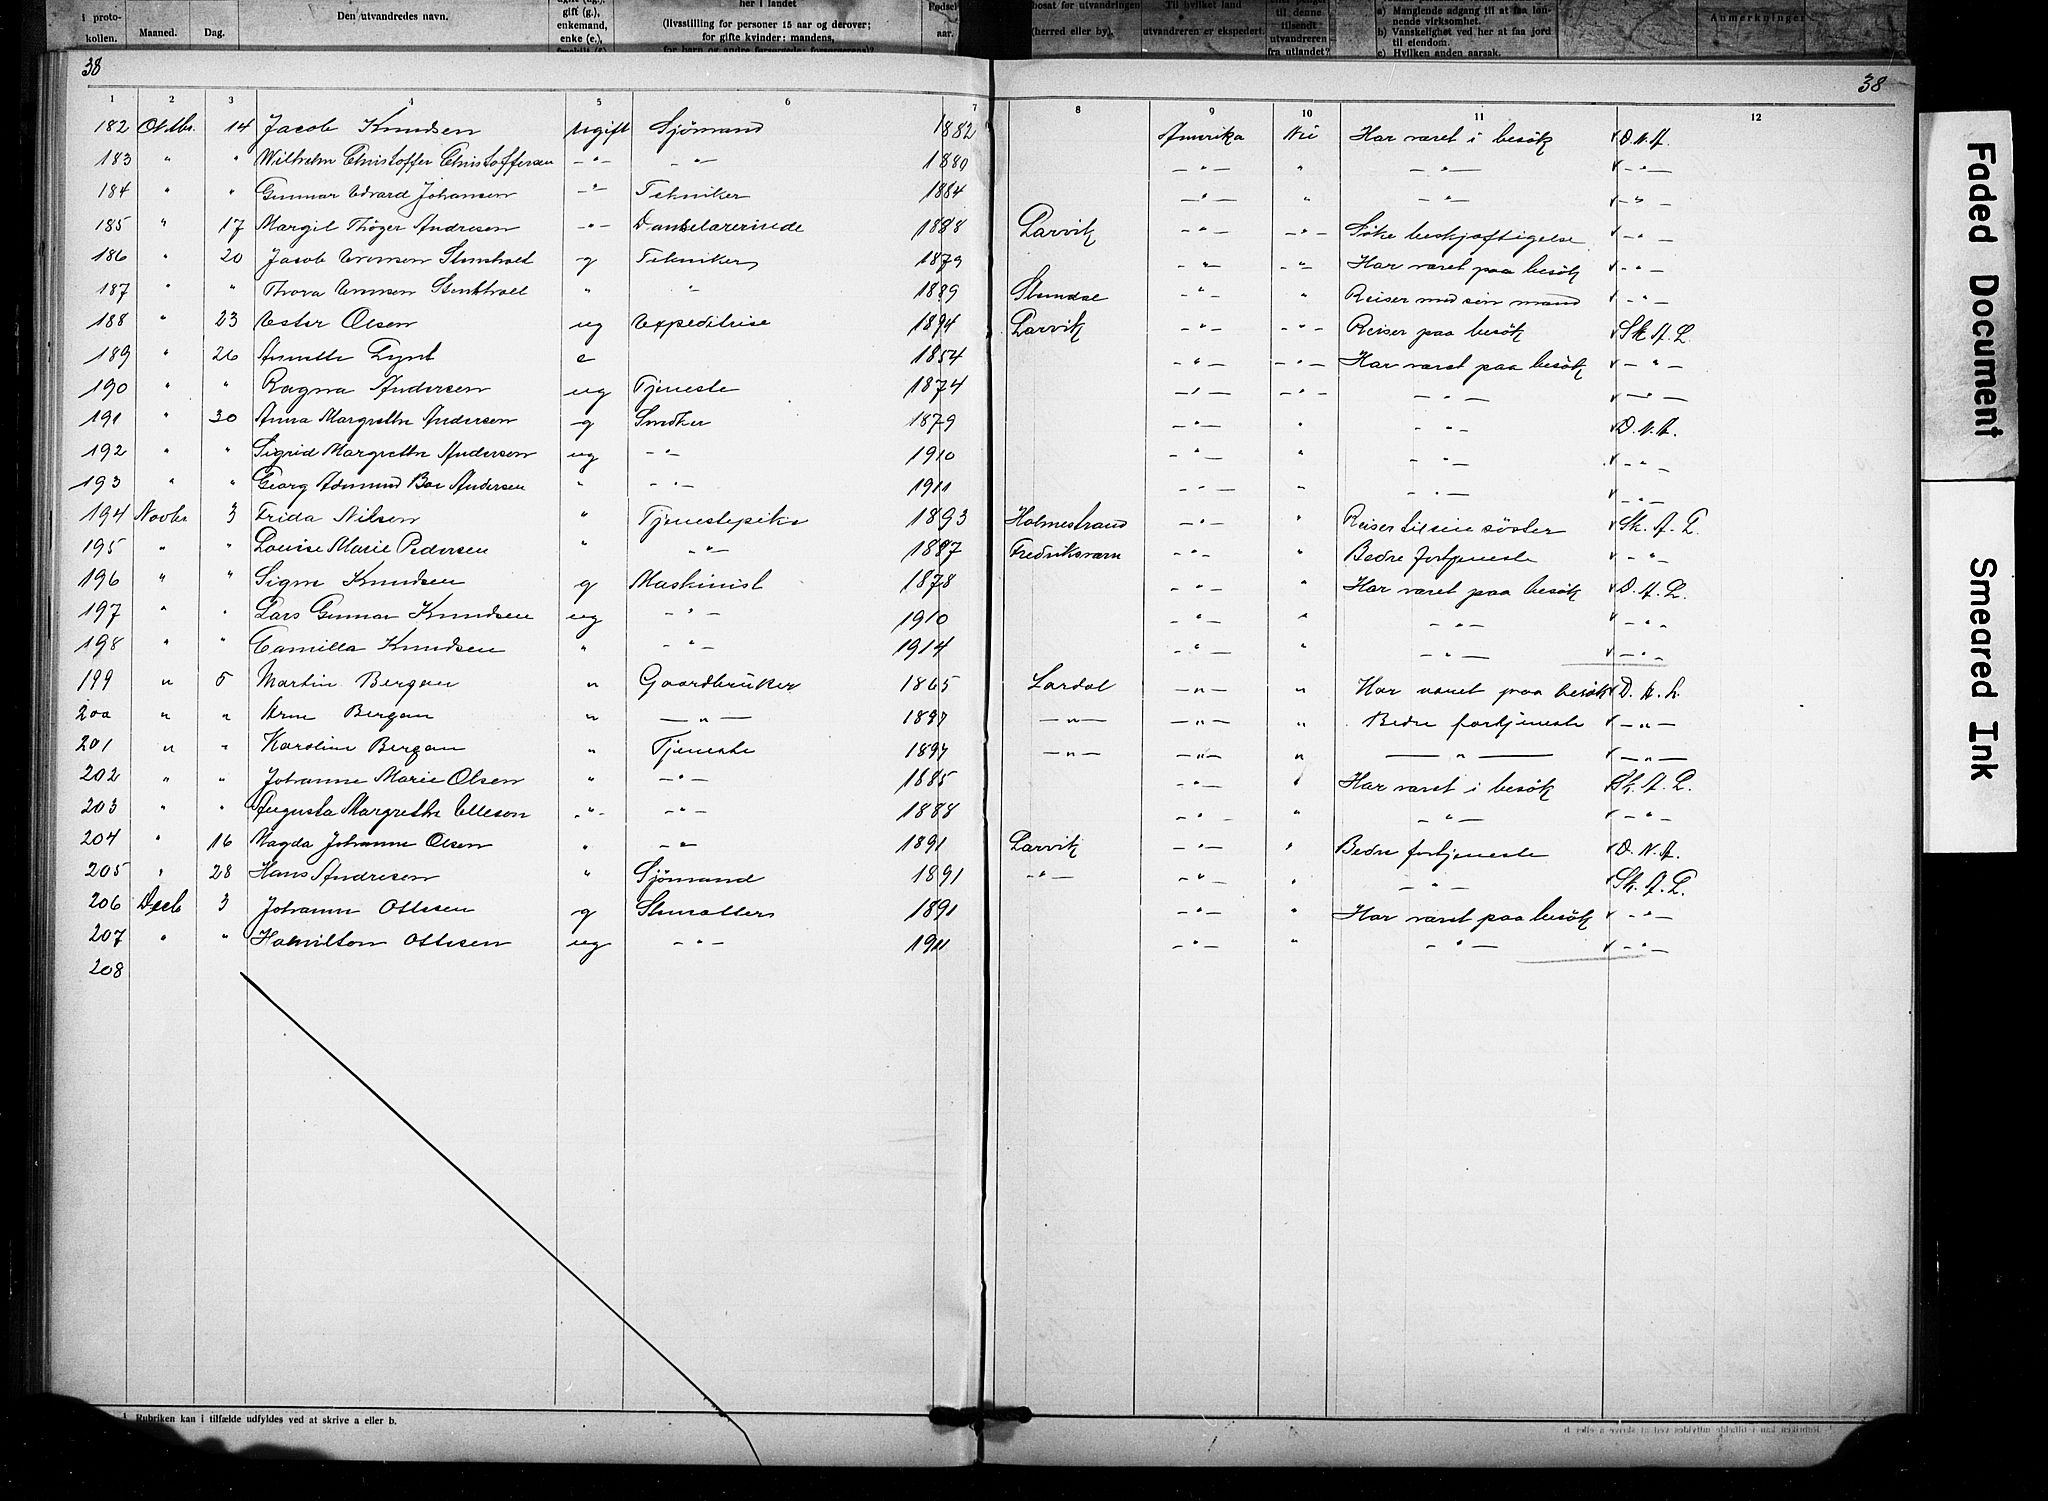 i proto-
kollen. Maaned. Dag. Den utvandredes navn.
gift (g.),
enkemand,
enke (e.),
her i landet
(livsstilling for personer 15 aar og derover;
for gifte kvinder: mandens,
Fødsels
aar.
bosat før utvandringen
(herred eller by).
Til hvilket land
utvandreren er ekspedert.
til denne
tilsendt
utvandreren
fra utlandet?
a) Manglende adgang til at faa løn-
nende virksomhet.
b) Vanskelighet ved her at faa jord
til eiendom.
c) Hvilken anden aarsak.
Anmerkninger
38 38
1 2 3 4 5 6 7 8 9 10 11 12
182 Octbr. 14 Jacob Knudsen Ugift Sjömand 1882 Amerika Nei Har været i besök D.N.A.
183 " " Wilhelm Christoffer Christoffersen -"- -"- 1880 -"- " -"- -"-
184 " " Gunnar Edvard Johansen -"- Tekniker 1884 -"- " -"- -"-
185 " 17 Margit Thöger Andresen -"- Danselærerinde 1888 Larvik -"- -"- Söke beskjæftigelse -"-
186 " 20 Jacob g Tekniker 1879 -"- -"- Har været paa besök -"-
187 " " Thora " " 1889 -"- " Reiser med sin mand -"-
188 " 23 Ester Olsen ug Expeditrise 1894 Larvik -"- -"- Reiser paa besök Sk. A. L.
189 " 26 Annette e 1854 -"- -"- Har været paa besök -"-
190 " " Ragna Andersen ug Tjeneste 1874 -"- -"- -"- -"-
191 " 30 Anna Margrethe Andersen g Snedker 1879 -"- " -"- D.N.A.
192 " " Sigrid Margrethe Andersen ug -"- 1910 -"- " -"- -"-
193 " " Georg Andersen " -"- 1911 -"- " -"- -"-
194 Novbr 3 Frida Nilsen " Tjenestepike 1893 Holmestrand -"- " Reiser til sin söster Sk. A. L.
195 " " Louise Marie Pedersen " -"- 1887 Fredriksværn -"- " Bedre fortjeneste -"-
196 " " Signe Knudsen g Maskinist 1878 -"- " Har været paa besök D. A. L.
197 " " Lars Gunnar Knudsen ug -"- 1910 -"- " -"- -"-
198 " " Camilla Knudsen " -"- 1914 -"- " -"- -"-
199 " 5 Martin Bergan " Gaardbruker 1865 Lardal -"- " Har været paa besök D. A. L.
200 " " Arne Bergan " -"- 1897 -"- -"- " Bedre fortjeneste -"-
201 " " Karoline Bergan " Tjeneste 1897 -"- -"- " -"- -"-
202 " " Johanne Marie Olsen " -"- 1885 -"- " Har været i besök Sk. A. L.
203 " " Augusta Margrethe Elleson -"- -"- 1888 -"- " -"- -"-
204 " 16 Magda Johanne Olsen " -"- 1891 Larvik -"- " Bedre fortjeneste D.N.A.
205 " 28 Hans Andresen " Sjömand 1891 -"- -"- " -"- Sk. A. L.
206 Decb 3 Johanne Ottesen g 1891 -"- " Har været paa besök -"-
207 " " Hamilton Ottesen ug -"- 1911 -"- " -"- -"-
208
1 Rubriken kan i tilfælde udfyldes ved at skrive a eller b.
Faded Document
Smeared Ink